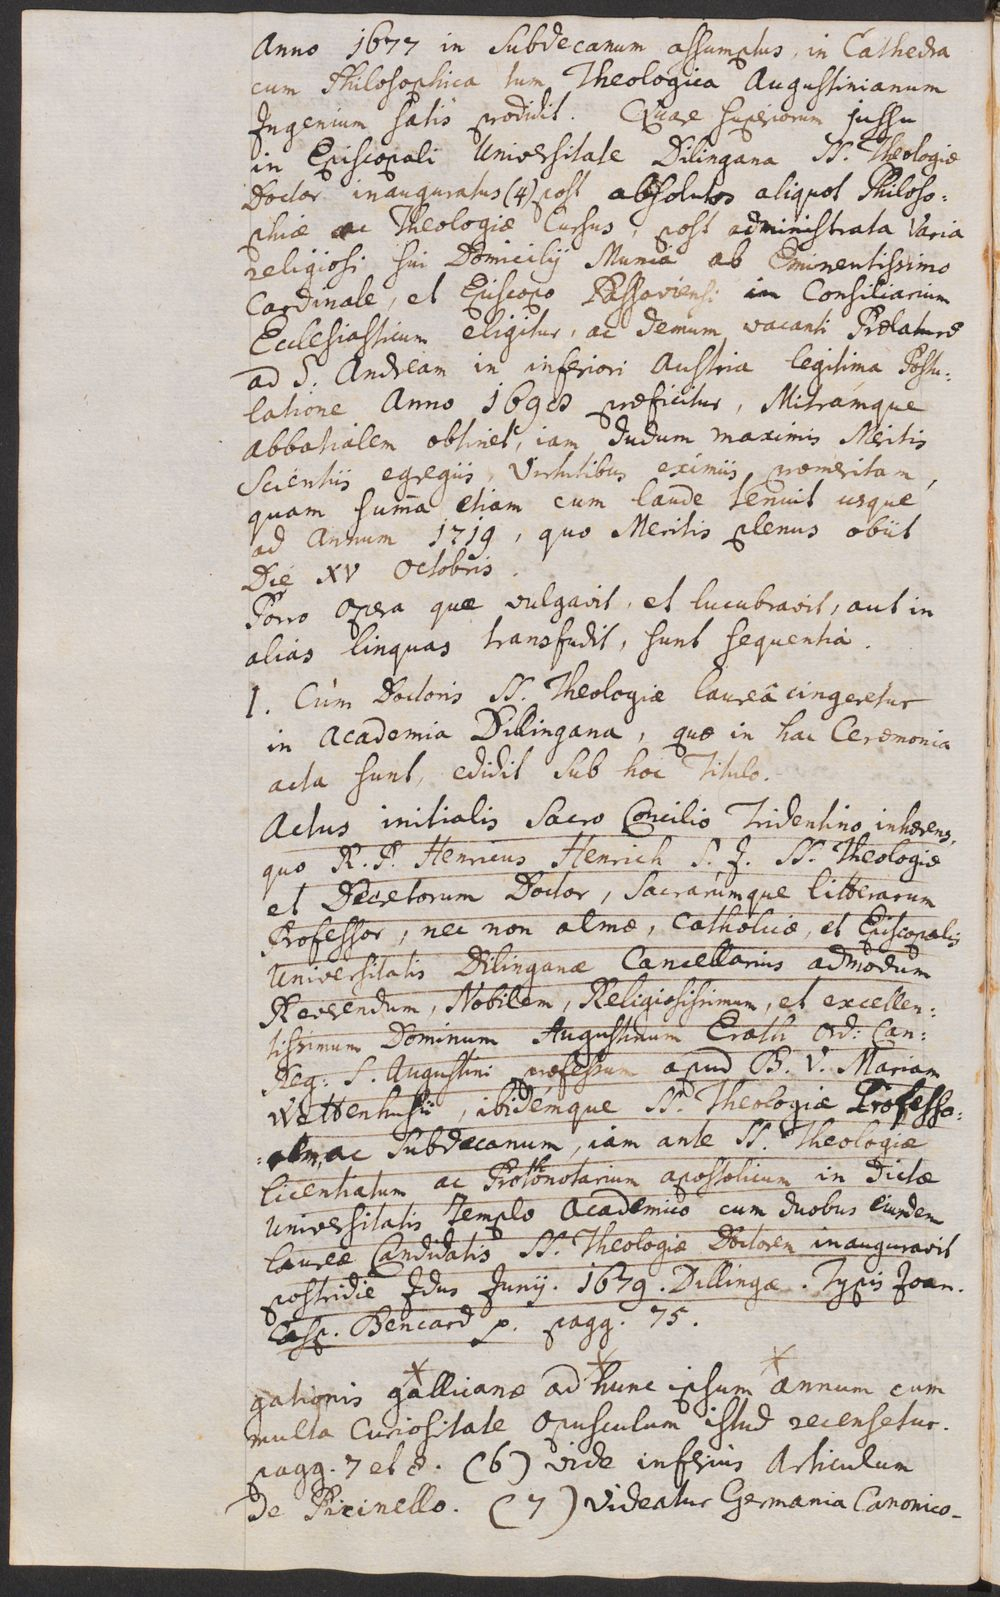 Anno 1677 in Subdecanum assumptus, in Cathedra
cum Philosophica tum Theologica Augustinianum
Ingenium satis prodidit. Quare superiorum jussu
in Episcopali Universitate Dilingana SS. Theologiæ
Doctor inauguratus (4) post absolutos aliquot Philoso=
phiæ ac Theologiæ Cursus, post administrata Varia
religiosi sui Domicilij Munia ab Eminentissimo
Cardinale, et Episcopo Passoviensi in Consiliarium
Ecclesiasticum eligitur, ac demum vacanti Prælaturæ
ad S. Andream in inferiori Austria legitima Postu=
latione Anno 1698 præficitur, Mitramque
abbatialem obtinet, iam dudum maximis Meritis
Scientiis egregiis, Virtutibus eximiis promeritam,
quam suma etiam cum laude tenuit usque
ad Annum 1719, quo Meritis plenus obiit
Die XV Octobris.
Porro Opera quæ vulgavit, et lucubravit, aut in
alias linquas transfudit, sunt sequentia.
I. Cùm Doctoris SS. Theologiæ laureâ cingeretur
in Academia Dillingana, quæ in hac Ceremonia
acta sunt, edidit sub hoc Titulo.
Actus initialis Sacro Concilio Tridentino inhærens,
quo R. P. Henricus Henrich S. J. SS. Theologiæ
et Decretorum Doctor, Sacrarumque litterarum
Professor, nec non almæ, Catholicæ, et Episcopalis
Universitatis Dilinganæ Cancellarius admodum
Reverendum, Nobilem, Religiosissimum, et excellen=
tissimum Dominum Augustinum Erath Ord: Can:
Reg: S. Augustini professum apud B. V. Mariam
Wettenhusii, ibidemque SS. Theologiæ Professo=
=rem, ac Subdecanum, iam ante SS. Theologiæ
licentiatum ac Protonotarium apostolicum in dictæ
Universitatis Templo Academico cum duobus eiusdem
laureæ Candidatis SS. Theologiæ Doctorem inauguravit
postridie Idus Junij. 1679. Dillingæ. Typis Joan.
Casp. Bencard p. pagg. 75.
gationis gallicanæ ad hunc ipsum annum cum
multa Curiositate Opusculum istud recensetur.
pagg. 7 et 8. (6) vide inferius Articulum
de Picinello. (7) videatur Germania Canonico-